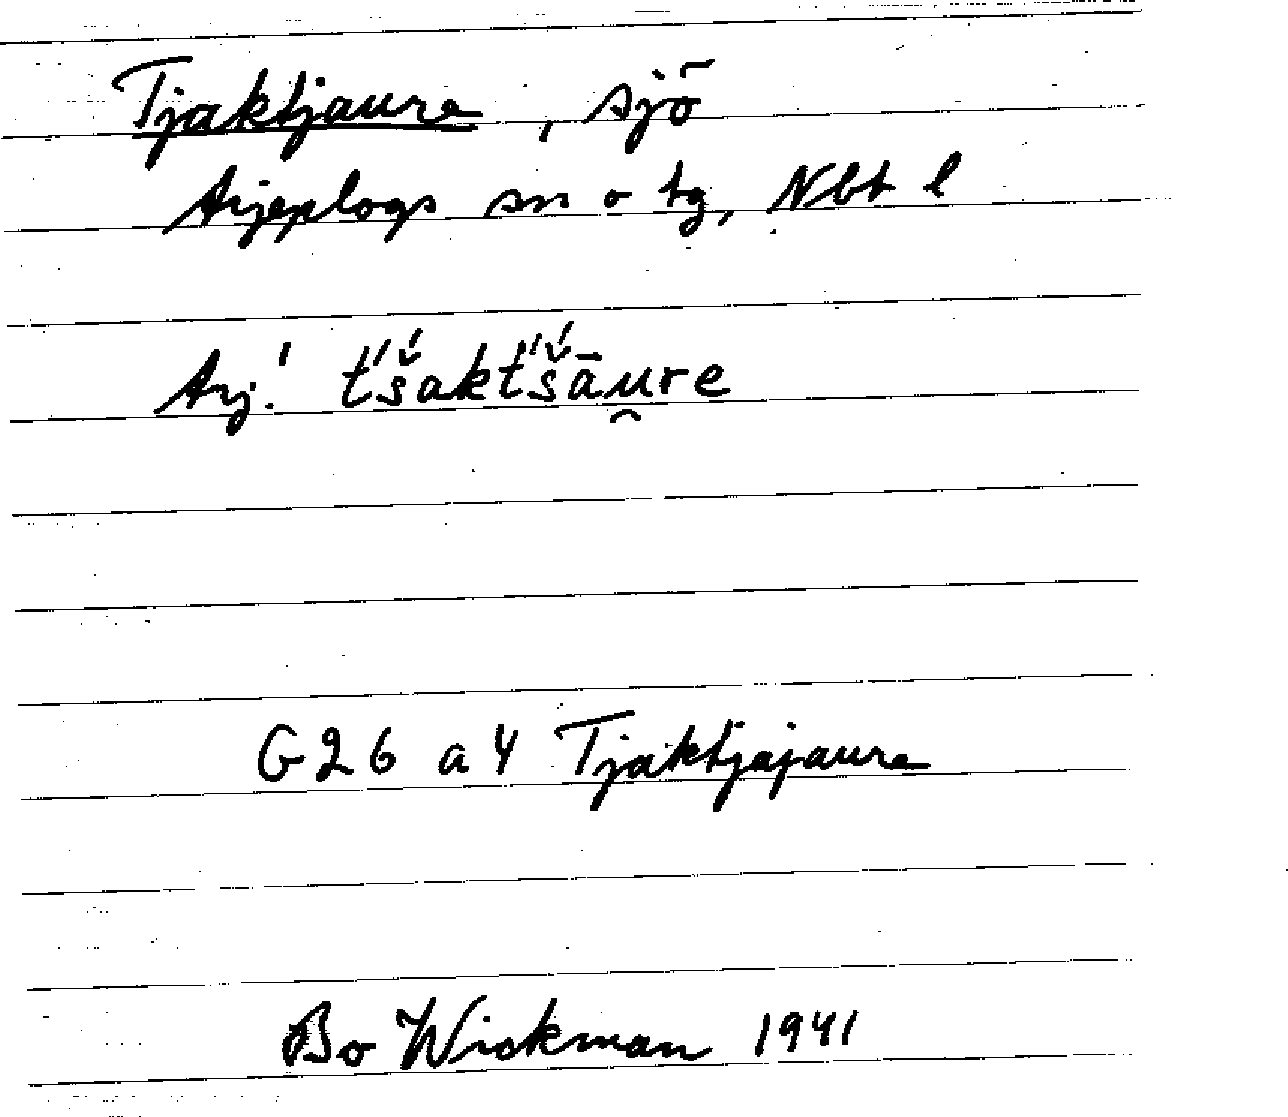 Tjaktjaure, sjö
Arjeplogs sn o tg, Nbt l
Arj.! t́š́akt́š́āu̯re
G26 a 4 Tjaktjajaure
Bo Wickman 1941